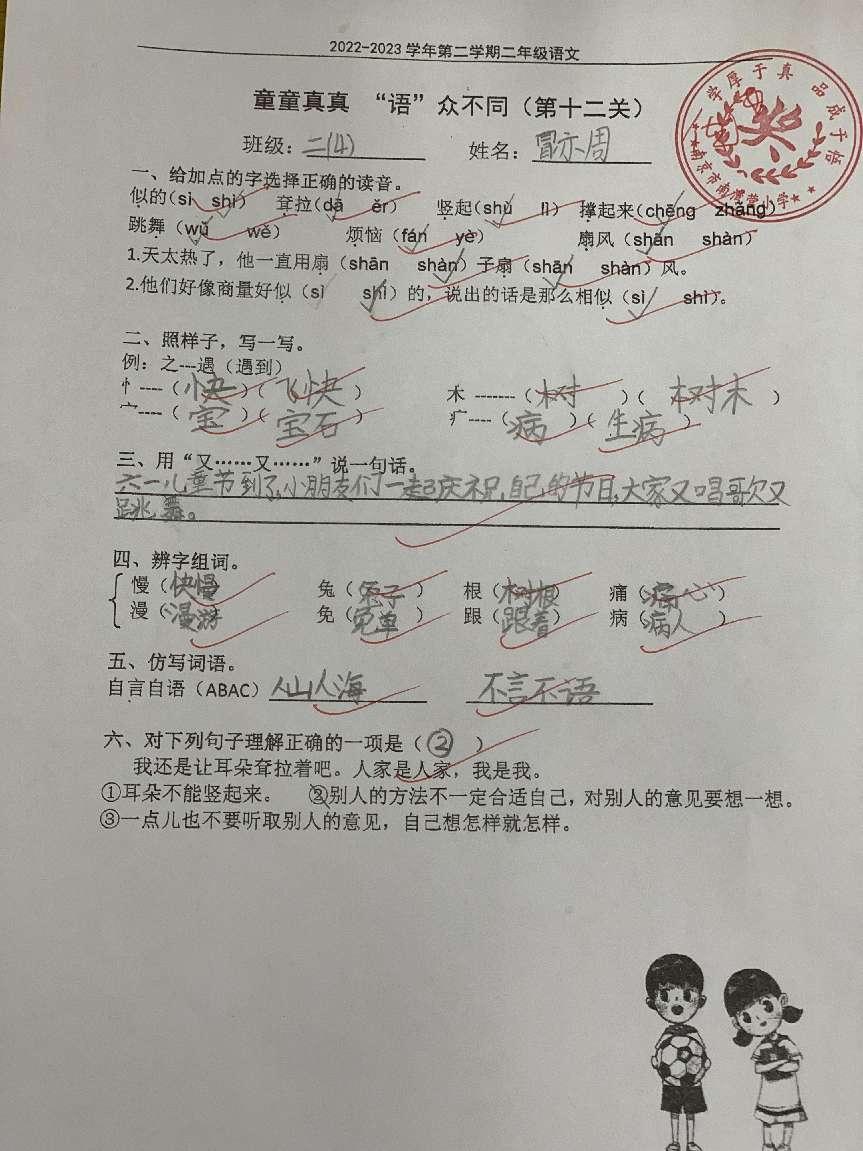 2022-2023 学年第二学期二年级语文
童童真真 “语”众不同（第十二关）
班级：二(4) 姓名：冒亦周
学厚于真 品成于悟
南京市南湾营小学
一、给加点的字选择正确的读音。
似的（sì shì） 耷拉（dā ěr） 竖起（shù lì） 撑起来（chēng zhǎng）
跳舞（wǔ wě） 烦恼（fán yè） 扇风（shān shàn）
1.天太热了，他一直用扇（shān shàn）子扇（shān shàn）风。
2.他们好像商量好似（sì shì）的，说出的话是那么相似（sì shì）。
二、照样子，写一写。
例：之---遇（遇到）
忄----（快）（飞快） 木 -------（树）（树木）
宀----（宝）（宝石） 疒----（病）（生病）
三、用“又……又……”说一句话。
六一儿童节到了,小朋友们一起庆祝,自己的节目,大家又唱歌又
跳舞。
四、辨字组词。
慢（快慢） 兔（兔子） 根（树根） 痛（痛心）
漫（漫游） 免（免单） 跟（跟着） 病（病人）
五、仿写词语。
自言自语（ABAC）人山人海 不言不语
六、对下列句子理解正确的一项是（②）
我还是让耳朵耷拉着吧。人家是人家，我是我。
①耳朵不能竖起来。 ②别人的方法不一定合适自己，对别人的意见要想一想。
③一点儿也不要听取别人的意见，自己想怎样就怎样。